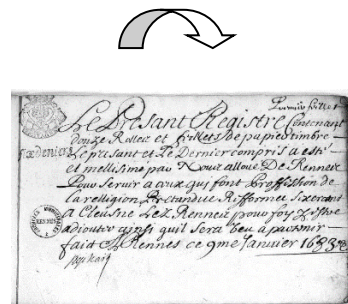 Premier feillet
Le Présant Registre Contenant
douze Rollez et feillets de papier timbre
Le présant et Le Dernier compris a esté
et millésimé par Nous alloué De Rennes
Pour Servir a ceux qui font Proffession de
la relligion Prétandue Refformee s'exerant
a Cleusne Lez Rennes pour foy
adiouter ainsi quil sera veu a partenir
fait A Rennes ce 9me Janvier 1683